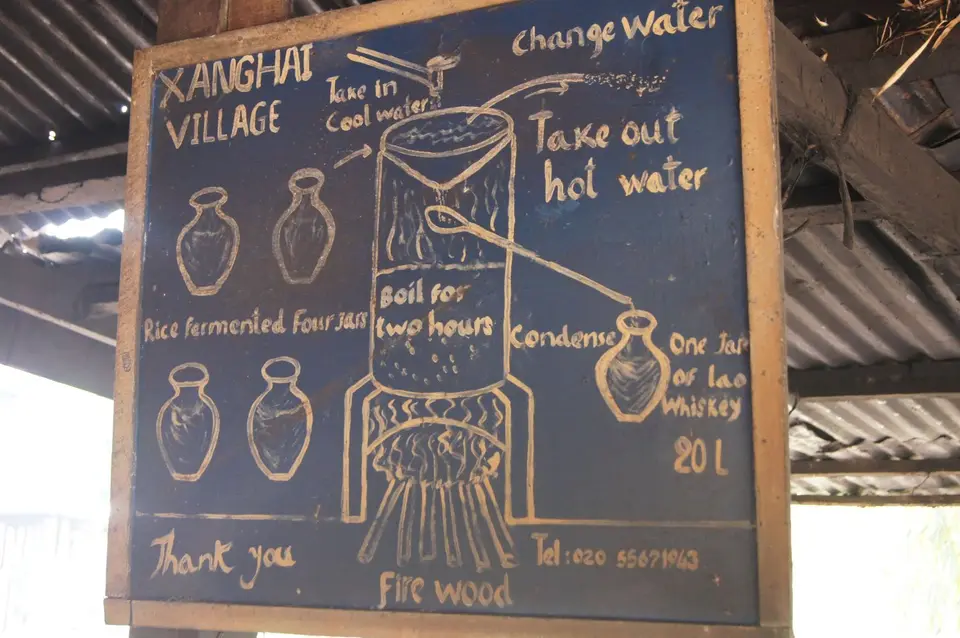 XANGHAI
VILLAGE
Take in
Cool water
Change Water
Take out
hot water
Rice fermented Four Jars
Boil for
two hours
Condense
One Jar
of lao
Whiskey
20 L
Thank you
Fire wood
Tel: 020 55671943